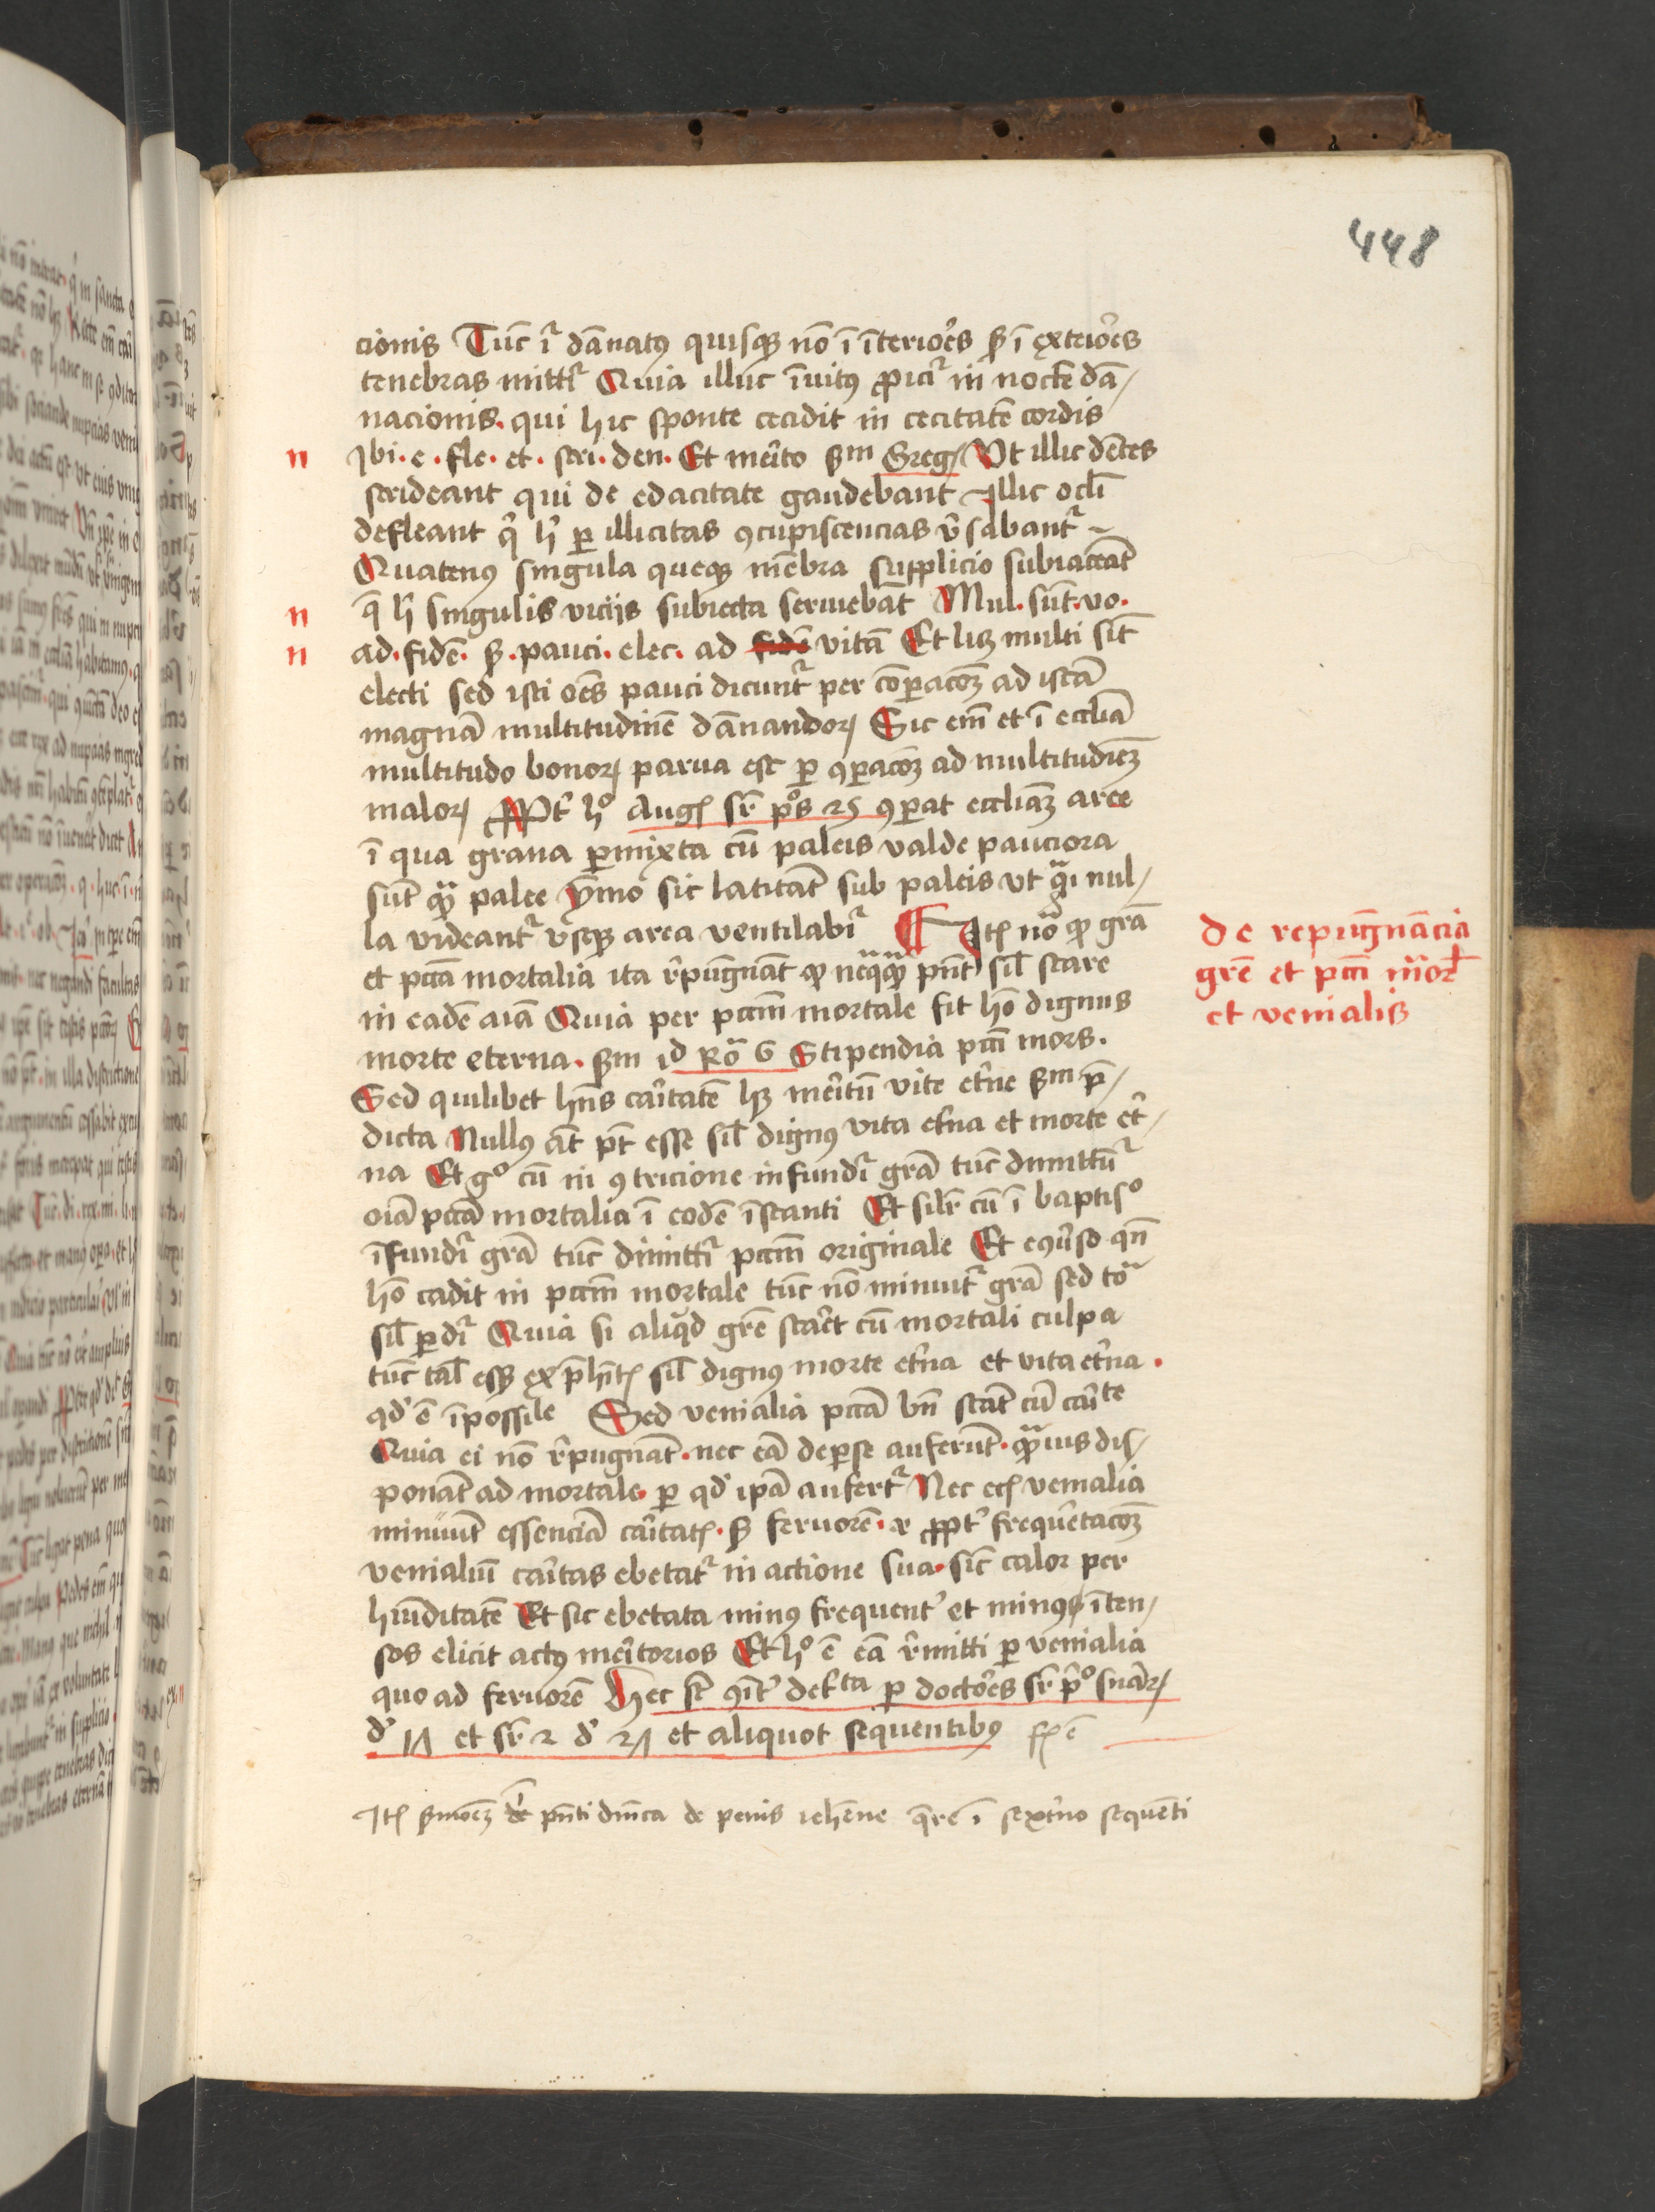 448
cionis Tūc ī dānatꝰ quisqꝫ nō ī īterio͛es sꝫ ī exterio͛es
tenebras mittr̄ Quia illuc īuitꝰ ꝓicr̄ in noctē dā/
nacionis. qui hic sponte cecidit in cecitatē cordis
n Ibi. e. fle. et. stri. den. Et me͛ito sm̄ Greg/ Vt illic dētes
strideant qui de edacitate gaudebant Illic ocl̄i
defleant q̄ h̄ ꝑ illicitas ꝯcupiscencias v͛sabantr̄
Quatenꝰ singula queqꝫ mēbra supplicio subiaceāt
n q̄ h̄ singulis vicijs subiecta seruiebāt Mul. sūt. vo.
n ad. fidē. sꝫ. pauci. elec. ad fidē vitā Et lꝫ multi sīt
electi sed isti oēs pauci dicuntr̄ per cōꝑacōꝫ ad istā
magnā multitudinē dānandoꝝ Sic em̄ et ī eccliā
multitudo bonoꝝ parua est ꝑ ꝯꝑacōꝫ ad multitudīeꝫ
maloꝝ Ppt͛ hº Augꝰ sr̄ pºs 25 ꝯꝑat eccliaꝫ aree
ī qua grana ꝑmixta cū paleis valde pauciora
sūt qᷓ palee ymo sic latitāt sub paleis vt qᷓi nul/
la videantr̄ vsqꝫ area ventilabir̄ ¶ Itꝫ noᷓ ꝙ grā
et pctā mortalia ita r͛pugnāt ꝙ neqᷓqᷓ pn̄t sil̄ stare
in eadē aīa Quia per pctm̄ mortale fit hō dignus
morte eterna. sm̄ id Roᷓ 6 Stipendia pctī mors.
Sed quilibet hn̄s ca͛itatē hꝫ me͛itū vite et͛ne sm̄ p̄/
dicta Nullꝰ āt pt̄ esse sil̄ dignꝰ vita et͛na et morte et͛/
na Et gº cū in ꝯtricione infundr̄ grā tūc dimittūr
oīa pctā mortalia ī eodē īstanti Et silr̄ cū ī baptisº
īfundr̄ grā tūc dimittr̄ pctm̄ originale Et eꝯu͛so qn̄
hō cadit in pctm̄ mortale tūc nō minuitr̄ grā sed toᷓ
sil̄ ꝑdr̄ Quia si aliqͥd grē sta͛et cū mortali culpa
tūc tal̄ essꝫ ex p̄hn̄tꝫ sil̄ dignꝰ morte et͛na et vita et͛na.
qd̓ ē īpossile Sed venialia pctā bn̄ stāt cū ca͛ite
Quia ei nō r͛pugnāt. nec eā deꝑse auferūt. qᷓuis dis/
ponāt ad mortale. ꝑ qd̓ ipā aufertr̄ Nec ecꝫ venialia
minuūt essenciā ca͛itatꝫ. sꝫ feruorē. ꝛ ꝓpt͛ frequētacōꝫ
venialiū ca͛itas ebetatr̄ in actione sua. sic̄ calor per
hūiditatē Et sic ebetata minꝰ frequent͛ et minꝰ īten/
sos elicit actꝰ me͛itorios Et hº ē eā r͛mitti ꝑ venialia
quo ad feruorē Hec st̄ ꝯīt͛ deſcta ꝑ docto͛es sr̄ p͛º sniaꝝ
d̓ 17 et sr̄ 2 d̓ 27 et aliquot sequentibꝰ
Itꝫ sermōeꝫ de pn̄ti dnīca de penis iehēne q̄re ī sext͛no sequēti
de repugnācia
grē et pctī mor̄l
et venialis